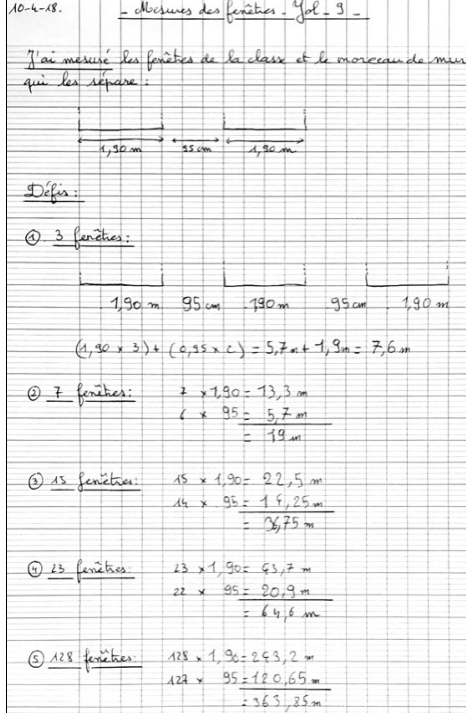 10-4-18. - Mesures des fenêtres - Yol - 9 -
J'ai mesuré les fenêtres de la classe et le morceau de mur
qui les sépare :
1,90 m 95 cm 1,90 m
Défis :
① 3 fenêtres :
1,90 m 95 cm 1,90 m 95 cm 1,90 m
(1,90 x 3) + (0,95 x 2) = 5,7 m + 1,9 m = 7,6 m
② 7 fenêtres : 7 x 1,90 = 13,3 m
6 x 95 = 5,7 m
= 19 m
③ 15 fenêtres : 15 x 1,90 = 22,5 m
14 x 95 = 14,25 m
= 36,75 m
④ 23 fenêtres : 23 x 1,90 = 43,7 m
22 x 95 = 20,9 m
= 64,6 m
⑤ 128 fenêtres : 128 x 1,90 = 243,2 m
127 x 95 = 120,65 m
= 363,85 m